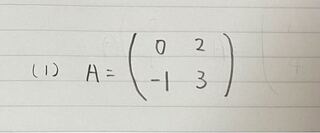 (1) A = ( 0 2
-1 3 )